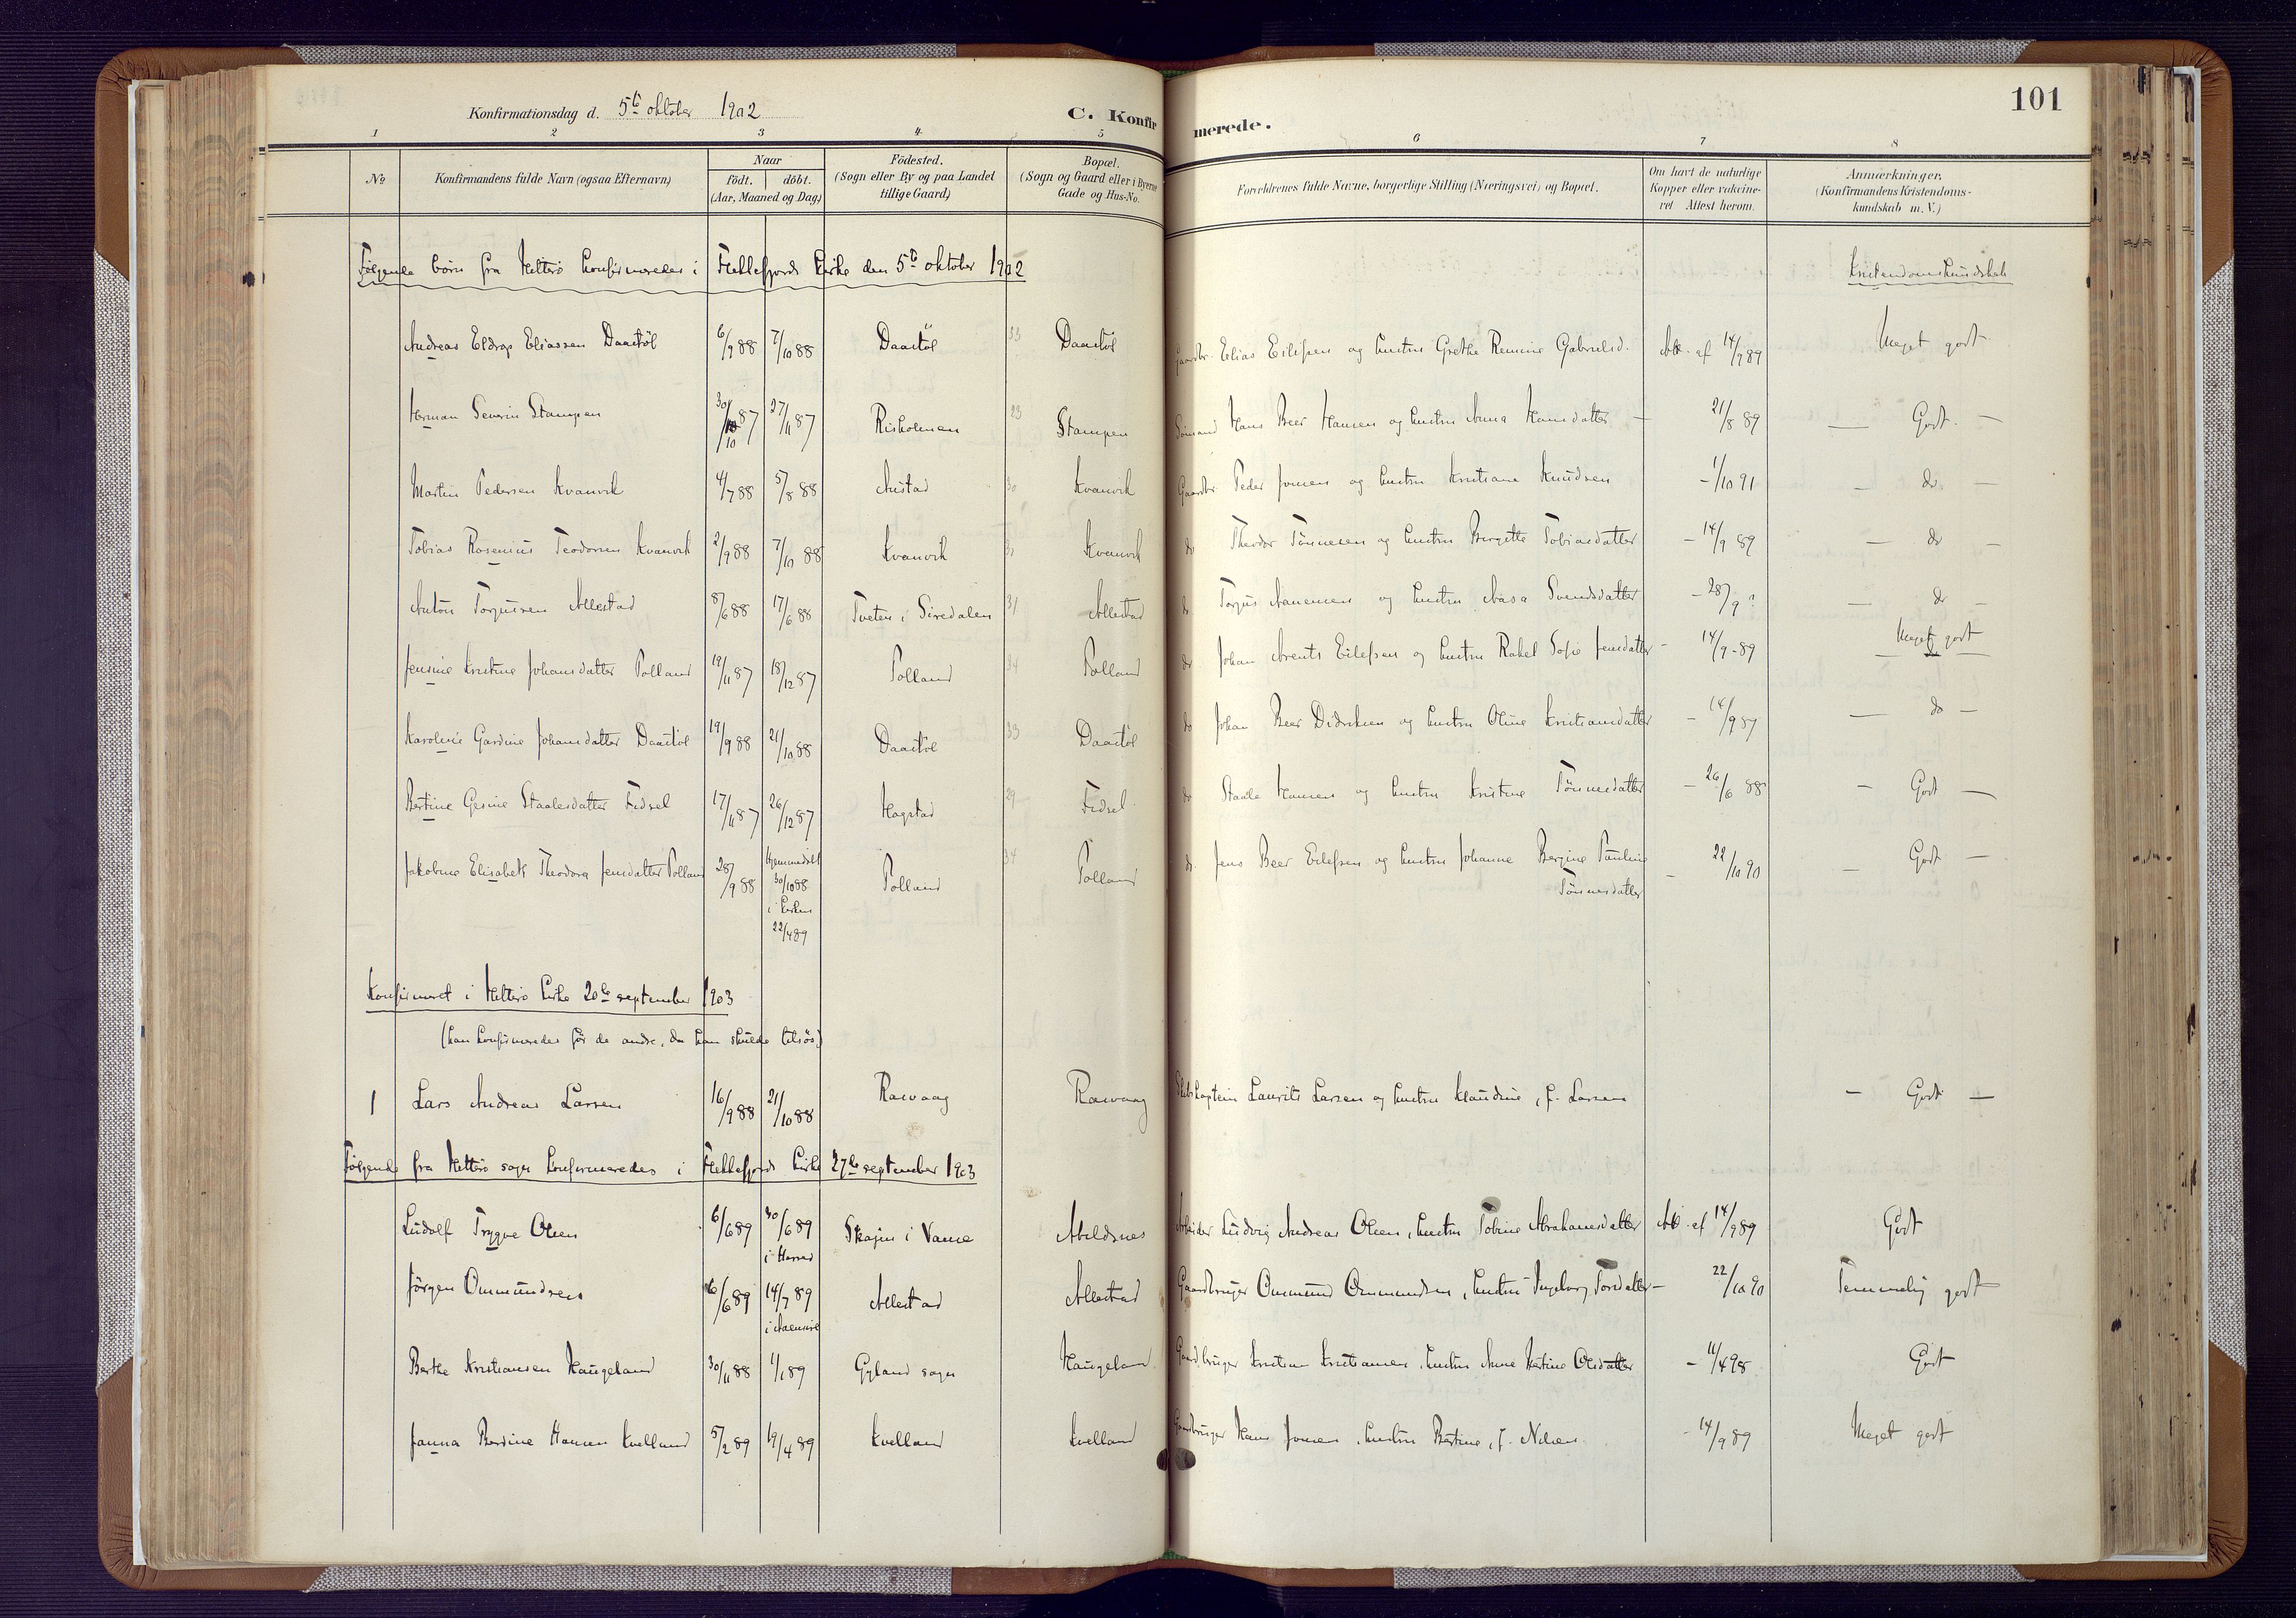 Konfirmationsdag d. 5te oktober 1902
C. Konfirmerede.
101
1 2 3 4 5 6 7 8
No
Konfirmandens fulde Navn (ogsaa Efternavn)
Naar
födt. döbt.
(Aar, Maaned og Dag)
Födested.
(Sogn eller By og paa Landet
tillige Gaard)
Bopæl.
(Sogn og Gaard eller i Byerne
Gade og Hus-No.
Forældrenes fulde Navne, borgerlige Stilling (Næringsvei) og Bopæl.
Om havt de naturlige
Kopper eller vakcine-
ret Attest herom.
Anmærkninger.
(Konfirmandens Kristendoms-
kundskab m. V.)
Følgende börn fra Hitterö konfirmeredes i Flekkefjords kirke den 5te oktober 1902
Kristendomskundskab
Andreas Eldrup Eliassen Daatöl 6/9 88 7/10 88 Daatöl 33 Daatöl Gaardbr. Elias Eilefsen og hustru Grethe Remine Gabrielsd. Att. af 14/9 89 Meget godt
Herman Severin Stampen 30/10 87 27/11 87 Risholmen 23 Stampen Sömand Hans Beer Hansen og hustru Anna Hansdatter — 21/8 89 — Godt —
Martin Pedersen Kvanvik 4/7 88 5/8 88 Austad 30 Kvanvik Gaardbr. Peder Jonsen og hustru Kristiane Knudsen - 1/10 91 — do —
Tobias Rosenius Teodorsen Kvanvik 2/9 88 7/10 88 Kvanvik 30 Kvanvik do Theodor Tönnesen og hustru Birgitte Tobiasdatter - 14/9 89 — do —
Anton Torjussen Allestad 8/6 88 17/6 88 Tveten i Siredalen 31 Allestad do Torjus Aanensen og hustru Aasa Svendsdatter - 28/9 ? — do —
Jensine Kristine Johansdatter Polland 19/11 87 18/12 87 Polland 34 Polland do. Johan Arents Eilefsen og hustru Rakel Sofie Jensdatter - 14/9 - 89 Meget godt
Karoline Gardine Johansdatter Daatöl 19/9 88 21/10 88 Daatöl 33 Daatöl do Johan Beer Didriksen og hustru Oline Kristiansdatter - 14/9 87 — do —
Bertine Gesine Staalesdatter Fidsel 17/11 87 26/12 87 Hogstad 29 Fidsel do Staale Hansen og hustru Kristine Tönnesdatter - 26/6 88 — Godt —
Jakobine Elisabeth Theodora Jensdatter Polland 28/9 88 Hjemmedöbt Polland 34 Polland do. Jens Beer Eilefsen og hustru Johanne Bergine Pauline - 22/10 90 — Godt —
30/10 88
i kirken
22/4 89
Tönnesdatter
Konfirmeret i Hitterö kirke 20de september 1903
(han konfirmeredes för de andre, da han skulde tilsös.)
1 Lars Andreas Larsen 16/9 88 21/10 88 Rasvaag Rasvaag Skibskaptein Laurits Larsen og hustru Klaudine, f. Larsen — Godt —
Følgende fra Hitterö sogn konfirmeredes i Flekkefjords kirke 27de september 1903
Ludolf Trygve Olsen 6/6 89 30/6 89 Skajen i Vanse Abeldsnes Arbeider Ludvig Andreas Olsen, hustru Tobine Abrahamsdatter Att. af 14/9 89 Godt
i Herred
Jörgen Ommundsen 16/6 89 14/7 89 Allestad Allestad Gaardbruger Ommund Ommundsen, hustru Ingeborg Torsdatter - 22/10 90 Temmelig godt
Berthe Kristiansen Haugeland 30/11 88 1/1 89 Gyland sogn Haugeland Gaardbruger Kristian Kristiansen, hustru Anne Bertine Olsdatter - 11/4 98 Godt
Janna Berdine Hansen Kvelland 5/2 89 19/4 89 Kvelland Kvelland Gaardbruger Hans Jonsen, hustru Bertine, f. Nilsen - 14/9 89 Meget godt